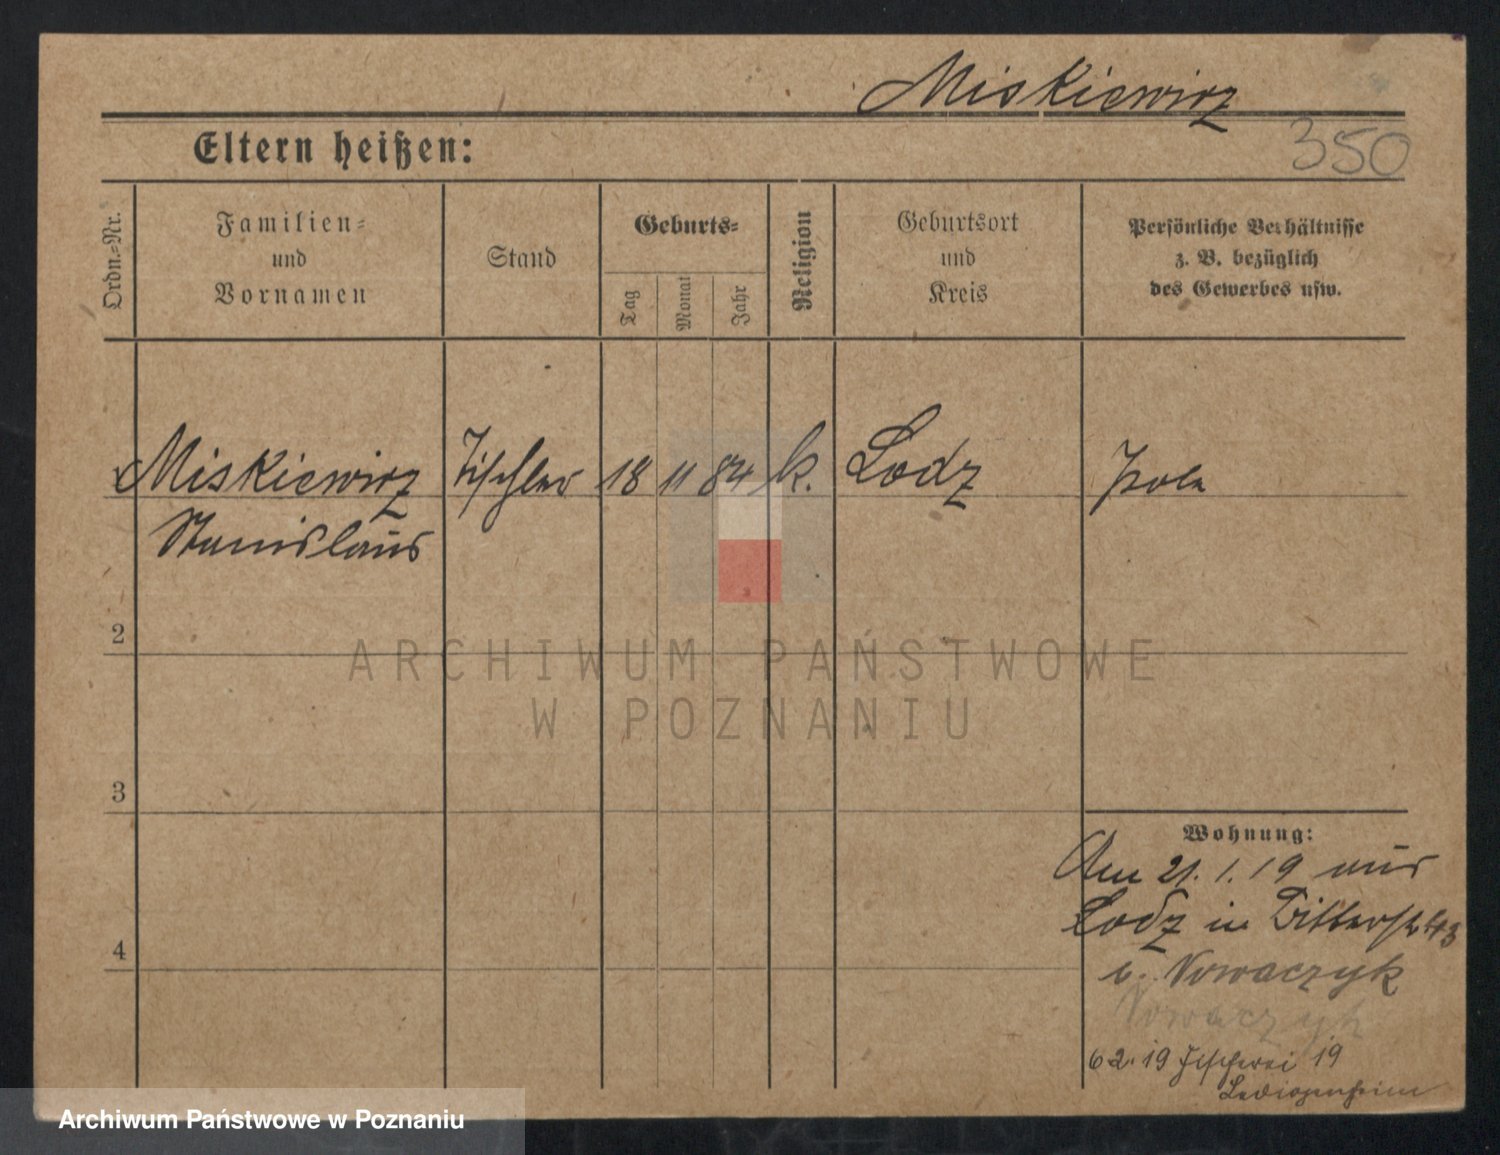 Miskiewicz
350
Eltern heißen:
Ordn.=Nr.
Familien=
und
Vornamen
Stand
Geburts=
Tag
Monat
Jahr
Religion
Geburtsort
und
Kreis
Persönliche Verhältnisse
z. B. bezüglich
des Gewerbes usw.
Miskiewicz Tischler 18 11 84 k. Lodz Pole
Stanislaus
2
ARCHIWUM PAŃSTWOWE
W POZNANIU
3
Wohnung:
Am 21. 1. 19 aus
Lodz in Ritterstr 43
b. Nowaczyk
4
Nowaczyk
6 2. 19 Fischerei 19
Archiwum Państwowe w Poznaniu